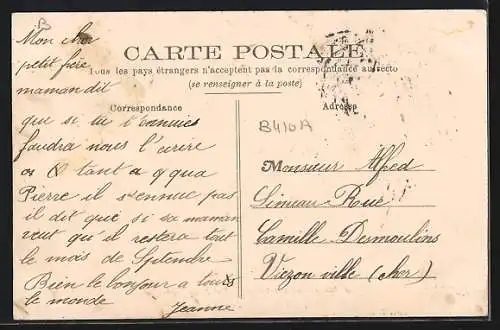 B
CARTE POSTALE
Tous les pays étrangers n'acceptent pas la correspondance au recto
(se renseigner à la poste)
Correspondance
Adresse
Mon cher
petit frère
maman dit
que si tu t'ennuies
faudra nous l'ecrire
tant a
Pierre il s'ennue pas
il dit que si sa maman
veut qu'il restera tout
le mois de
Bien le bonjour a tous
le monde
Jeanne
B416A
Monsieur Alfred
Limeau Rue
Camille Desmoulins
Viezon ville (cher)